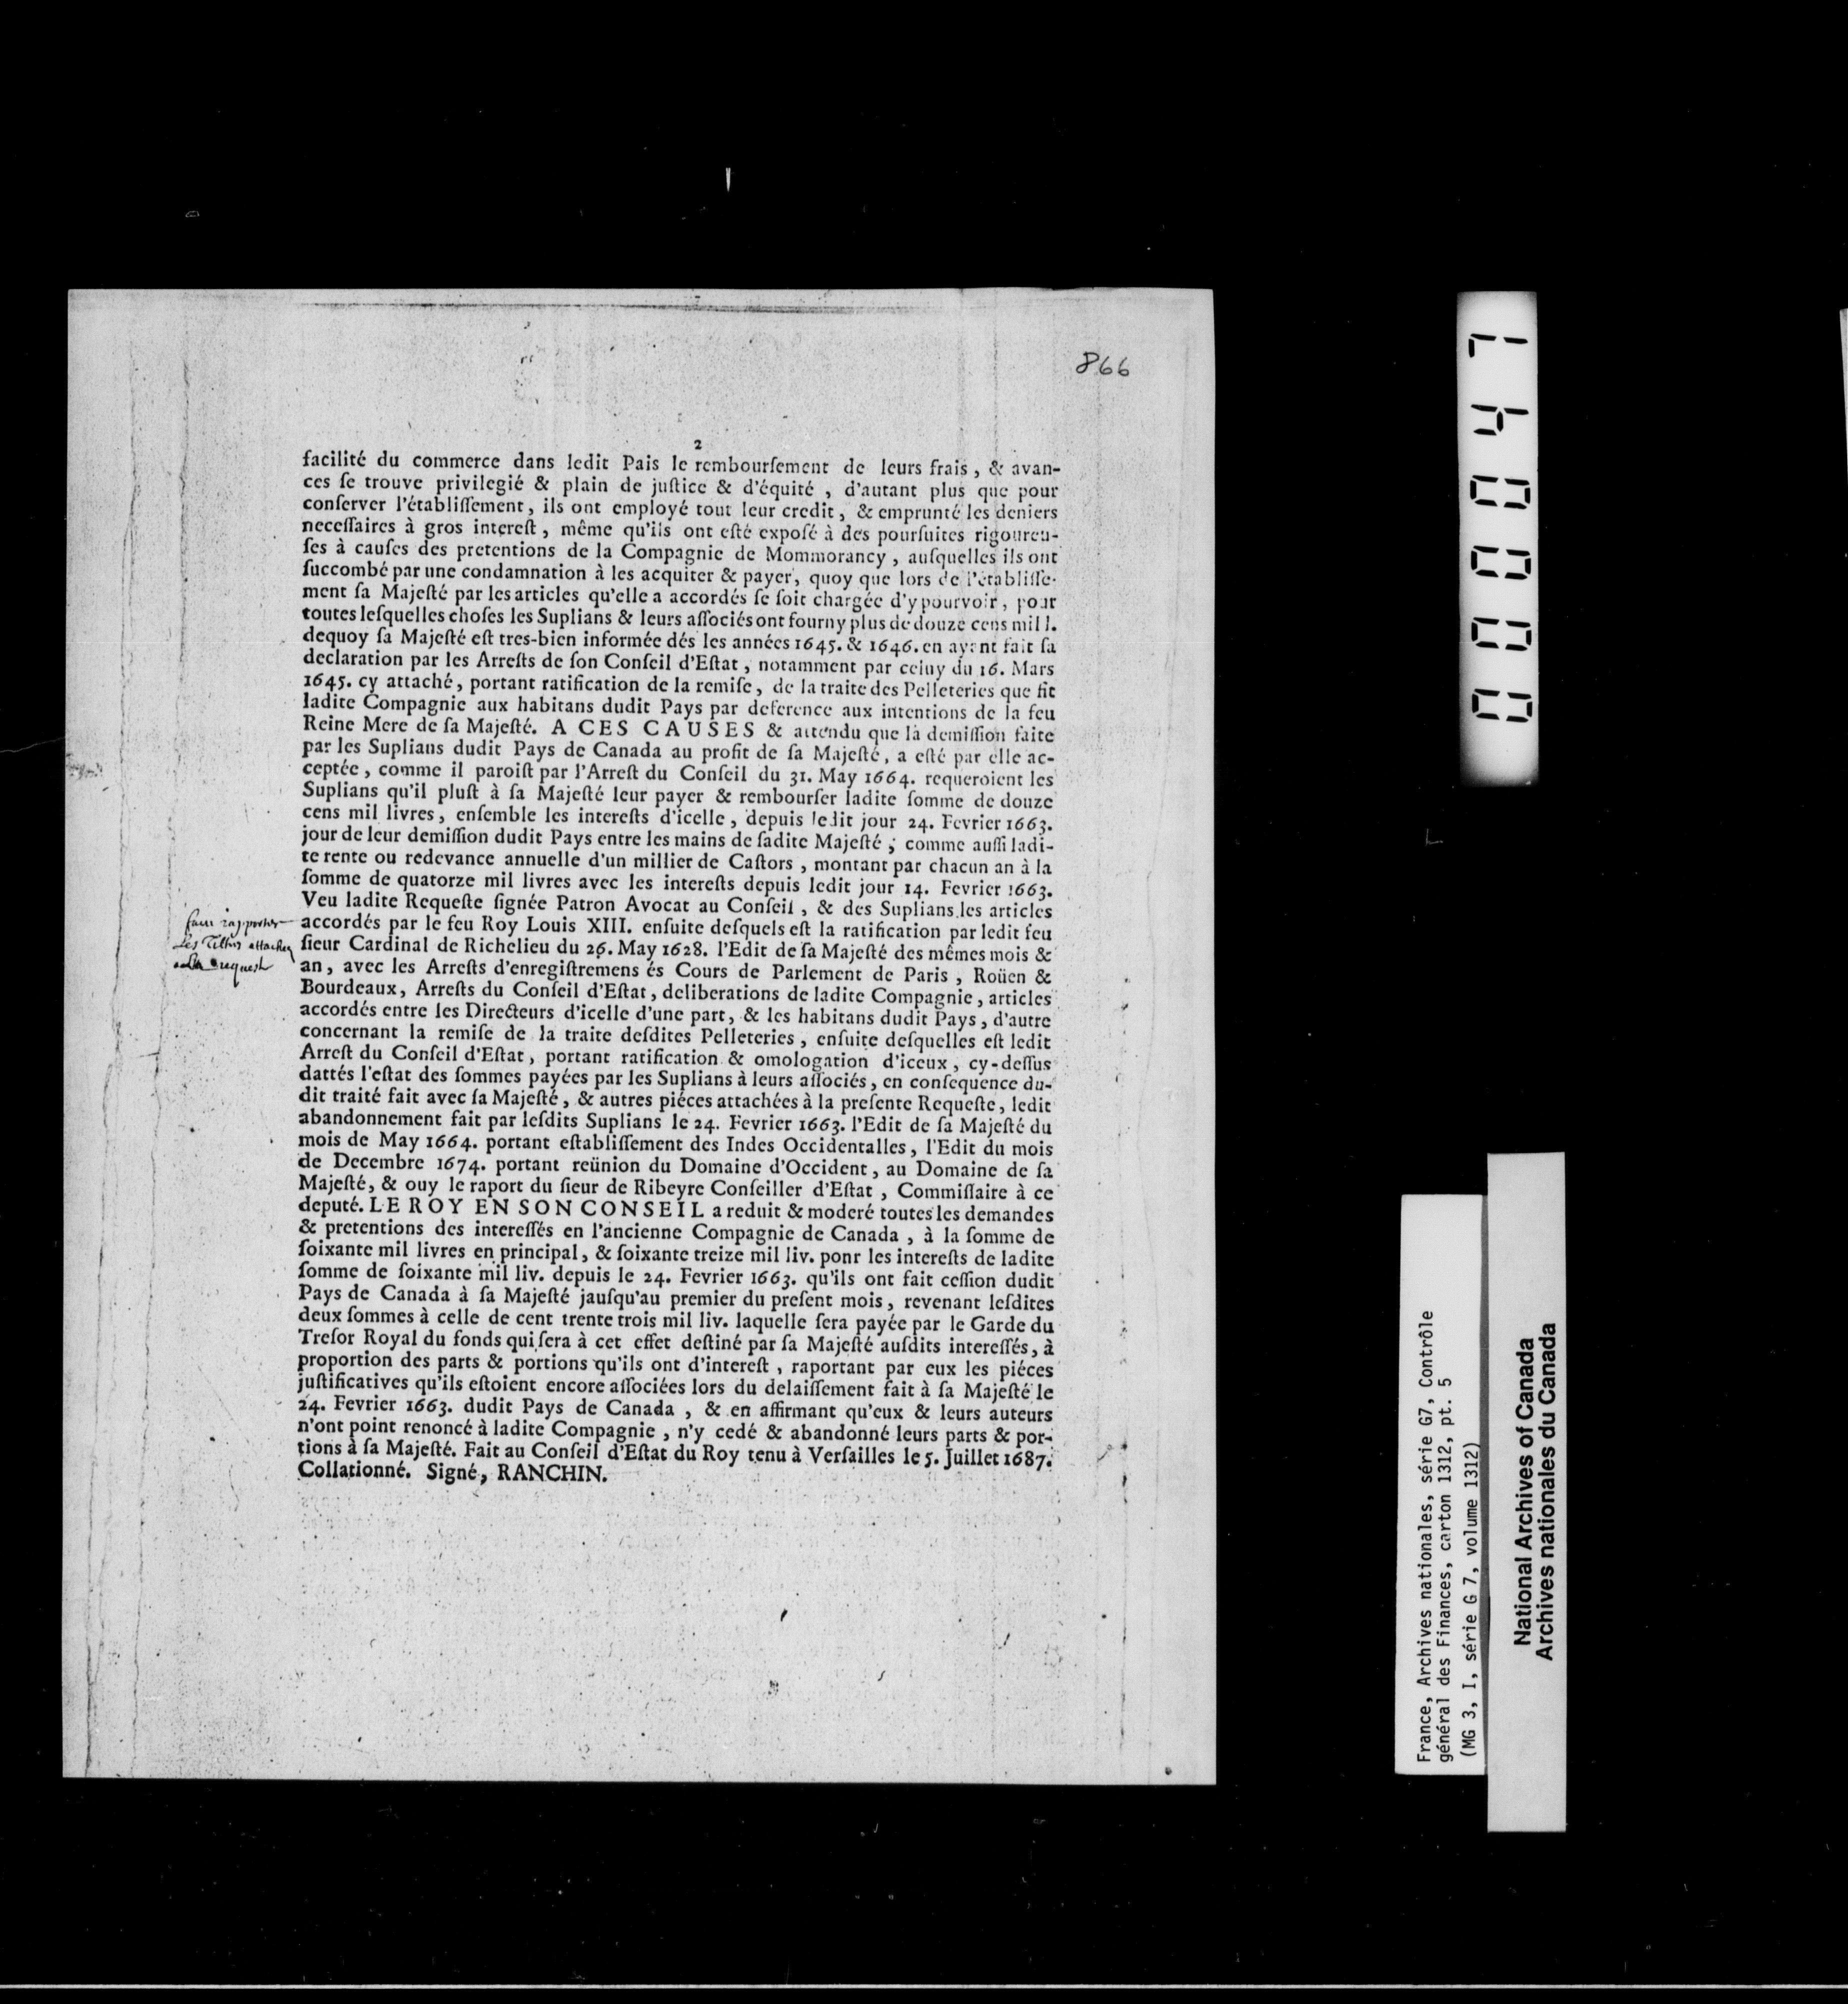 866
2
facilité du commerce dans ledit Pais le rembourſement de leurs frais, & avan-
ces ſe trouve privilegié & plain de juſtice & d'équité, d'autant plus que pour
conſerver l'établiſſement, ils ont employé tout leur credit, & emprunté les deniers
neceſſaires à gros intereſt, même qu'ils ont eſté expoſé à des pourſuites rigoureu-
ſes à cauſes des pretentions de la Compagnie de Mommorancy, auſquelles ils ont
ſuccombé par une condamnation à les acquiter & payer, quoy que lors de l'établiſſe-
ment ſa Majeſté par les articles qu'elle a accordés ſe ſoit chargée d'y pourvoir, pour
toutes leſquelles choſes les Suplians & leurs aſſociés ont fourny plus de douze cens mil l.
dequoy ſa Majeſté eſt tres-bien informée dés les années 1645. & 1646. en ayant fait ſa
declaration par les Arreſts de ſon Conſeil d'Eſtat, notamment par celuy du 16. Mars
1645. cy attaché, portant ratification de la remiſe, de la traite des Pelleteries que fit
ladite Compagnie aux habitans dudit Pays par deference aux intentions de la feu
Reine Mere de ſa Majeſté. A CES CAUSES & attendu que la demiſſion faite
par les Suplians dudit Pays de Canada au profit de ſa Majeſté, a eſté par elle ac-
ceptée, comme il paroiſt par l'Arreſt du Conſeil du 31. May 1664. requeroient les
Suplians qu'il pluſt à ſa Majeſté leur payer & rembourſer ladite ſomme de douze
cens mil livres, enſemble les intereſts d'icelle, depuis ledit jour 24. Fevrier 1663.
jour de leur demiſſion dudit Pays entre les mains de ſadite Majeſté; comme auſſi ladi-
te rente ou redevance annuelle d'un millier de Caſtors, montant par chacun an à la
ſomme de quatorze mil livres avec les intereſts depuis ledit jour 14. Fevrier 1663.
Veu ladite Requeſte ſignée Patron Avocat au Conſeil, & des Suplians les articles
accordés par le feu Roy Louis XIII. enſuite deſquels eſt la ratification par ledit feu
ſieur Cardinal de Richelieu du 26. May 1628. l'Edit de ſa Majeſté des mêmes mois &
an, avec les Arreſts d'enregiſtremens és Cours de Parlement de Paris, Roüen &
Bourdeaux, Arreſts du Conſeil d'Eſtat, deliberations de ladite Compagnie, articles
accordés entre les Directeurs d'icelle d'une part, & les habitans dudit Pays, d'autre
concernant la remiſe de la traite deſdites Pelleteries, enſuite deſquelles eſt ledit
Arreſt du Conſeil d'Eſtat, portant ratification & omologation d'iceux, cy-deſſus
dattés l'eſtat des ſommes payées par les Suplians à leurs aſſociés, en conſequence du-
dit traité fait avec ſa Majeſté, & autres piéces attachées à la preſente Requeſte, ledit
abandonnement fait par leſdits Suplians le 24. Fevrier 1663. l'Edit de ſa Majeſté du
mois de May 1664. portant eſtabliſſement des Indes Occidentalles, l'Edit du mois
de Decembre 1674. portant reünion du Domaine d'Occident, au Domaine de ſa
Majeſté, & ouy le raport du ſieur de Ribeyre Conſeiller d'Eſtat, Commiſſaire à ce
deputé. LE ROY EN SON CONSEIL a reduit & moderé toutes les demandes
& pretentions des intereſſés en l'ancienne Compagnie de Canada, à la ſomme de
ſoixante mil livres en principal, & ſoixante treize mil liv. ponr les intereſts de ladite
ſomme de ſoixante mil liv. depuis le 24. Fevrier 1663. qu'ils ont fait ceſſion dudit
Pays de Canada à ſa Majeſté jauſqu'au premier du preſent mois, revenant leſdites
deux ſommes à celle de cent trente trois mil liv. laquelle ſera payée par le Garde du
Treſor Royal du fonds qui ſera à cet effet deſtiné par ſa Majeſté auſdits intereſſés, à
proportion des parts & portions qu'ils ont d'intereſt, raportant par eux les piéces
juſtificatives qu'ils eſtoient encore aſſociées lors du delaiſſement fait à ſa Majeſté le
24. Fevrier 1663. dudit Pays de Canada, & en affirmant qu'eux & leurs auteurs
n'ont point renoncé à ladite Compagnie, n'y cedé & abandonné leurs parts & por-
tions à ſa Majeſté. Fait au Conſeil d'Eſtat du Roy tenu à Verſailles le 5. Juillet 1687.
Collationné. Signé, RANCHIN.
faire rapporter
Les Tiltres attachez
a la requeste
000047
France, Archives nationales, série G7, Contrôle
général des Finances, carton 1312, pt. 5
(MG 3, I, série G 7, volume 1312)
National Archives of Canada
Archives nationales du Canada